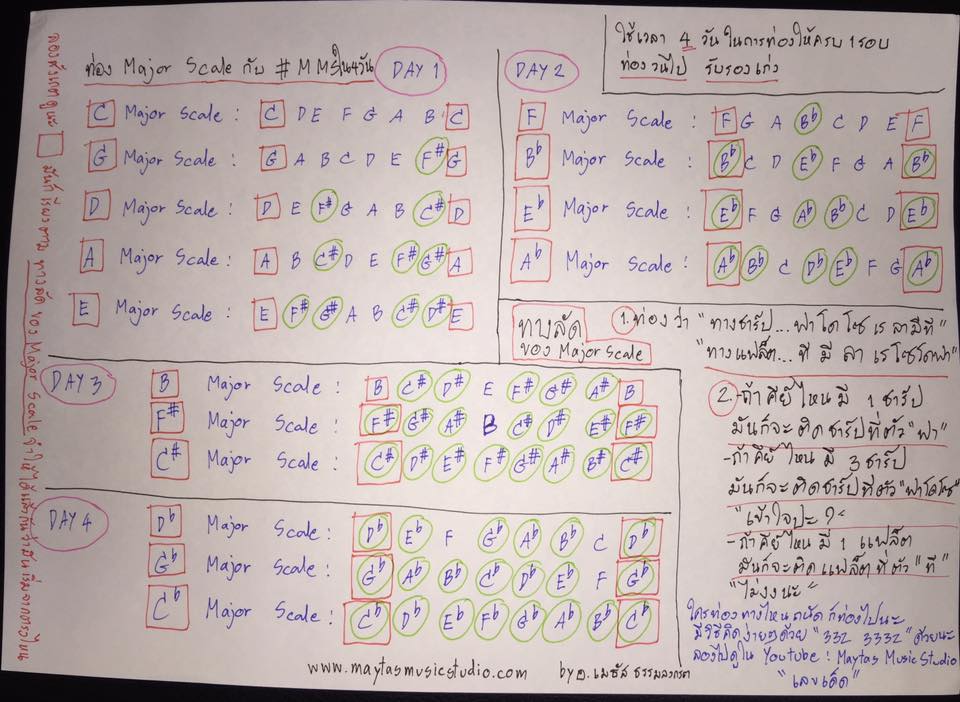 ท่อง Major Scale กับ #MMSใน4วัน
DAY 1
C Major Scale : C D E F G A B C
G Major Scale : G A B C D E F# G
D Major Scale : D E F# G A B C# D
A Major Scale : A B C# D E F# G# A
E Major Scale : E F# G# A B C# D# E
ใช้เวลา 4 วัน ในการท่องให้ครบ 1 รอบ
ท่องวนไป รับรองเก่ง
DAY 2
F Major Scale : F G A Bb C D E F
Bb Major Scale : Bb C D Eb F G A Bb
Eb Major Scale : Eb F G Ab Bb C D Eb
Ab Major Scale : Ab Bb C Db Eb F G Ab
DAY 3
B Major Scale : B C# D# E F# G# A# B
F# Major Scale : F# G# A# B C# D# E# F#
C# Major Scale : C# D# E# F# G# A# B# C#
DAY 4
Db Major Scale : Db Eb F Gb Ab Bb C Db
Gb Major Scale : Gb Ab Bb Cb Db Eb F Gb
Cb Major Scale : Cb Db Eb Fb Gb Ab Bb Cb
ทางลัด
ของ Major Scale
1. ท่องว่า "ทางชาร์ป...ฟา โด โซ เร ลา มี ที"
"ทางแฟล็ต... ที มี ลา เร โซ โด ฟา"
2. -ถ้าคีย์ไหนมี 1 ชาร์ป
มันก็จะติดชาร์ปที่ตัว "ฟา"
-ถ้าคีย์ไหนมี 3 ชาร์ป
มันก็จะติดชาร์ปที่ตัว "ฟาโดโซ"
"เข้าใจปะ ?"
-ถ้าคีย์ไหนมี 1 แฟล็ต
มันก็จะติดแฟล็ตที่ตัว "ที"
"ไม่งงนะ"
ใครท่องทางไหนถนัด ก็ท่องไปนะ
มีวิธีคิดง่ายๆด้วย "332 3332" ด้วยนะ
ลองไปดูใน Youtube : Maytas Music Studio
"เลขเด็ด"
ลองสังเกตดูนะ มันก็เรียงตาม ทางลัด ของ Major Scale
www.maytasmusicstudio.com by อ. เมธัส ธรรมลงกรต